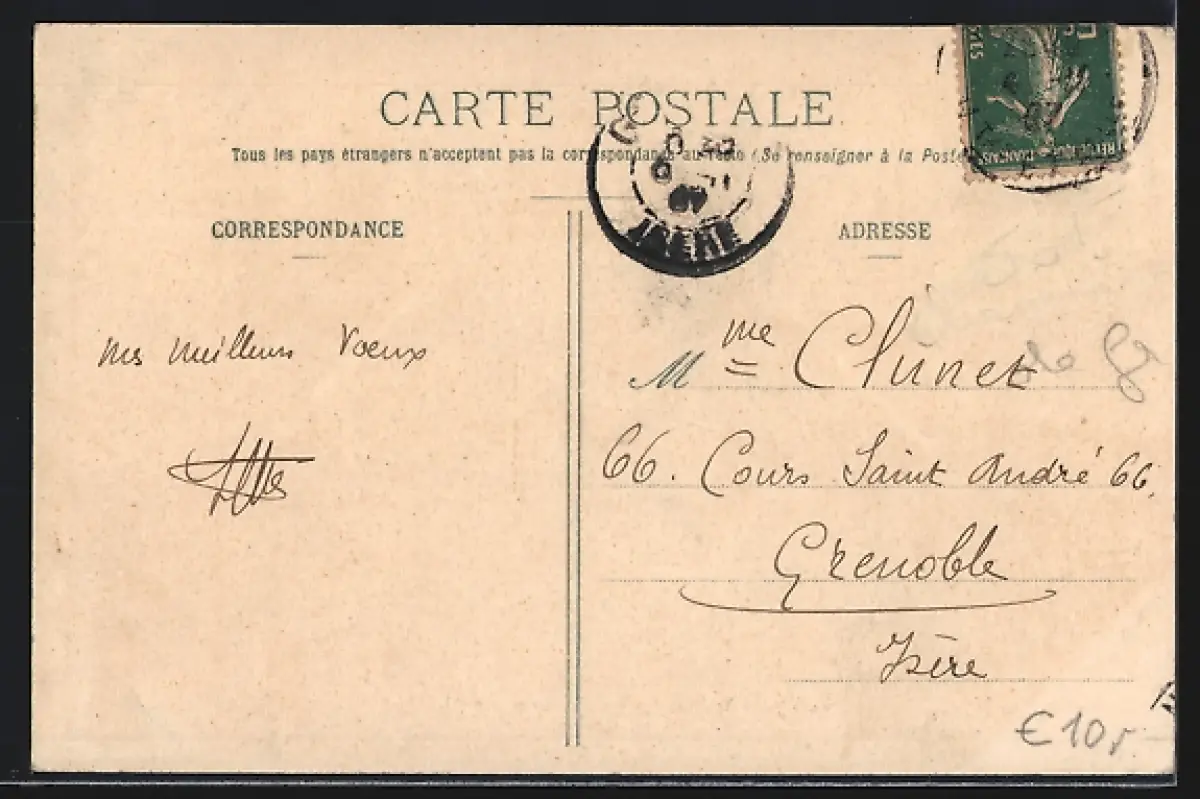 CARTE POSTALE
Tous les pays étrangers n'acceptent pas la correspondance au recto (Se renseigner à la Poste
CORRESPONDANCE
ADRESSE
mes meilleurs Voeux
Mme Clunet
66. Cours Saint André 66.
Grenoble
Isère
€10,-
ISERE
07
REPUBLIQUE FRANÇAISE